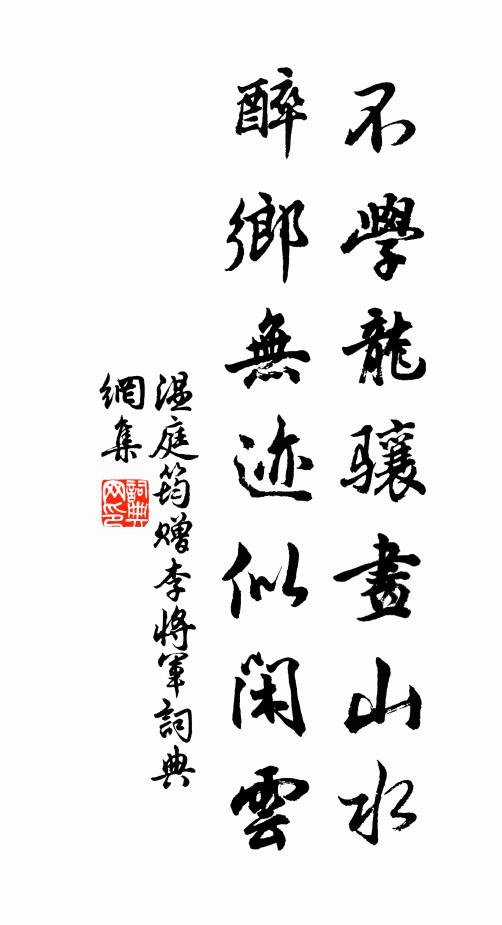 不學龍驤畫山水
醉鄉無迹似閑雲
温庭筠贈李將軍詞典
網集
詞典
网印